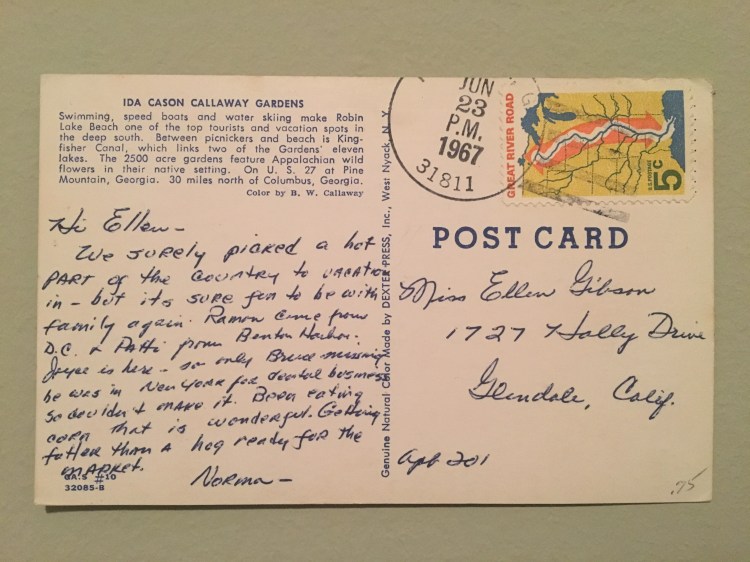 IDA CASON CALLAWAY GARDENS
Swimming, speed boats and water skiing make Robin
Lake Beach one of the top tourists and vacation spots in
the deep south. Between picnickers and beach is King-
fisher Canal, which links two of the Gardens' eleven
lakes. The 2500 acre gardens feature Appalachian wild
flowers in their native setting. On U. S. 27 at Pine
Mountain, Georgia. 30 miles north of Columbus, Georgia.
Color by B. W. Callaway
Hi Ellen -
We surely picked a hot
part of the country to vacation
in - but its sure fun to be with
family again. Ramon came from
D.C. & Patti from Benton Harbor.
Joyce is here - so only Bruce missing
he was in New York for dental business
so couldn't make it. Been eating
corn that is wonderful. Getting
fatter than a hog ready for the
market.
Norma -
GA.S #10
32085-B
Genuine Natural Color Made by DEXTER PRESS, Inc., West Nyack, N. Y.
JUN
23
P.M.
1967
31811
GREAT RIVER ROAD
U.S. POSTAGE
5c
POST CARD
Miss Ellen Gibson
1727 Holly Drive
Glendale, Calif.
Apt 201
.75